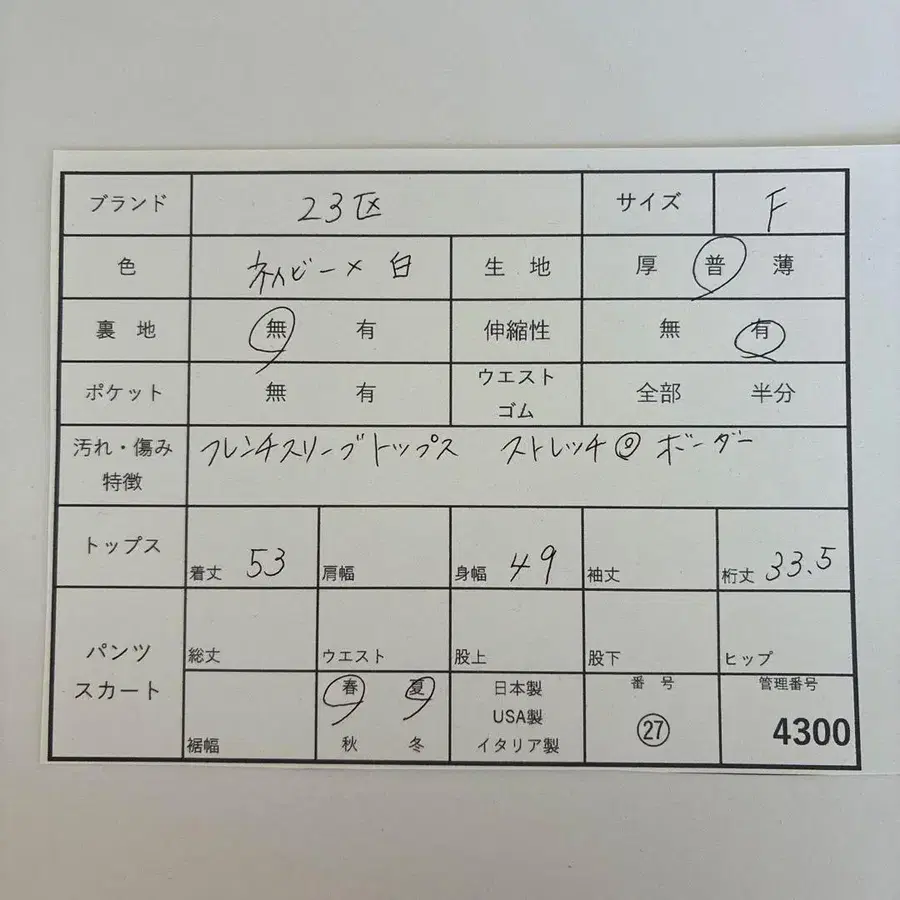 ブランド 23区 サイズ F
色 ネイビー×白 生地 厚 普 薄
裏地 無 有 伸縮性 無 有
ポケット 無 有 ウエスト
ゴム 全部 半分
汚れ・傷み
特徴 フレンチスリーブトップス ストレッチ◎ ボーダー
トップス 着丈 53 肩幅 身幅 49 袖丈 裄丈 33.5
パンツ
スカート 総丈 ウエスト 股上 股下 ヒップ
裾幅 春 夏
秋 冬
日本製
USA製
イタリア製
番号
㉗
管理番号
4300